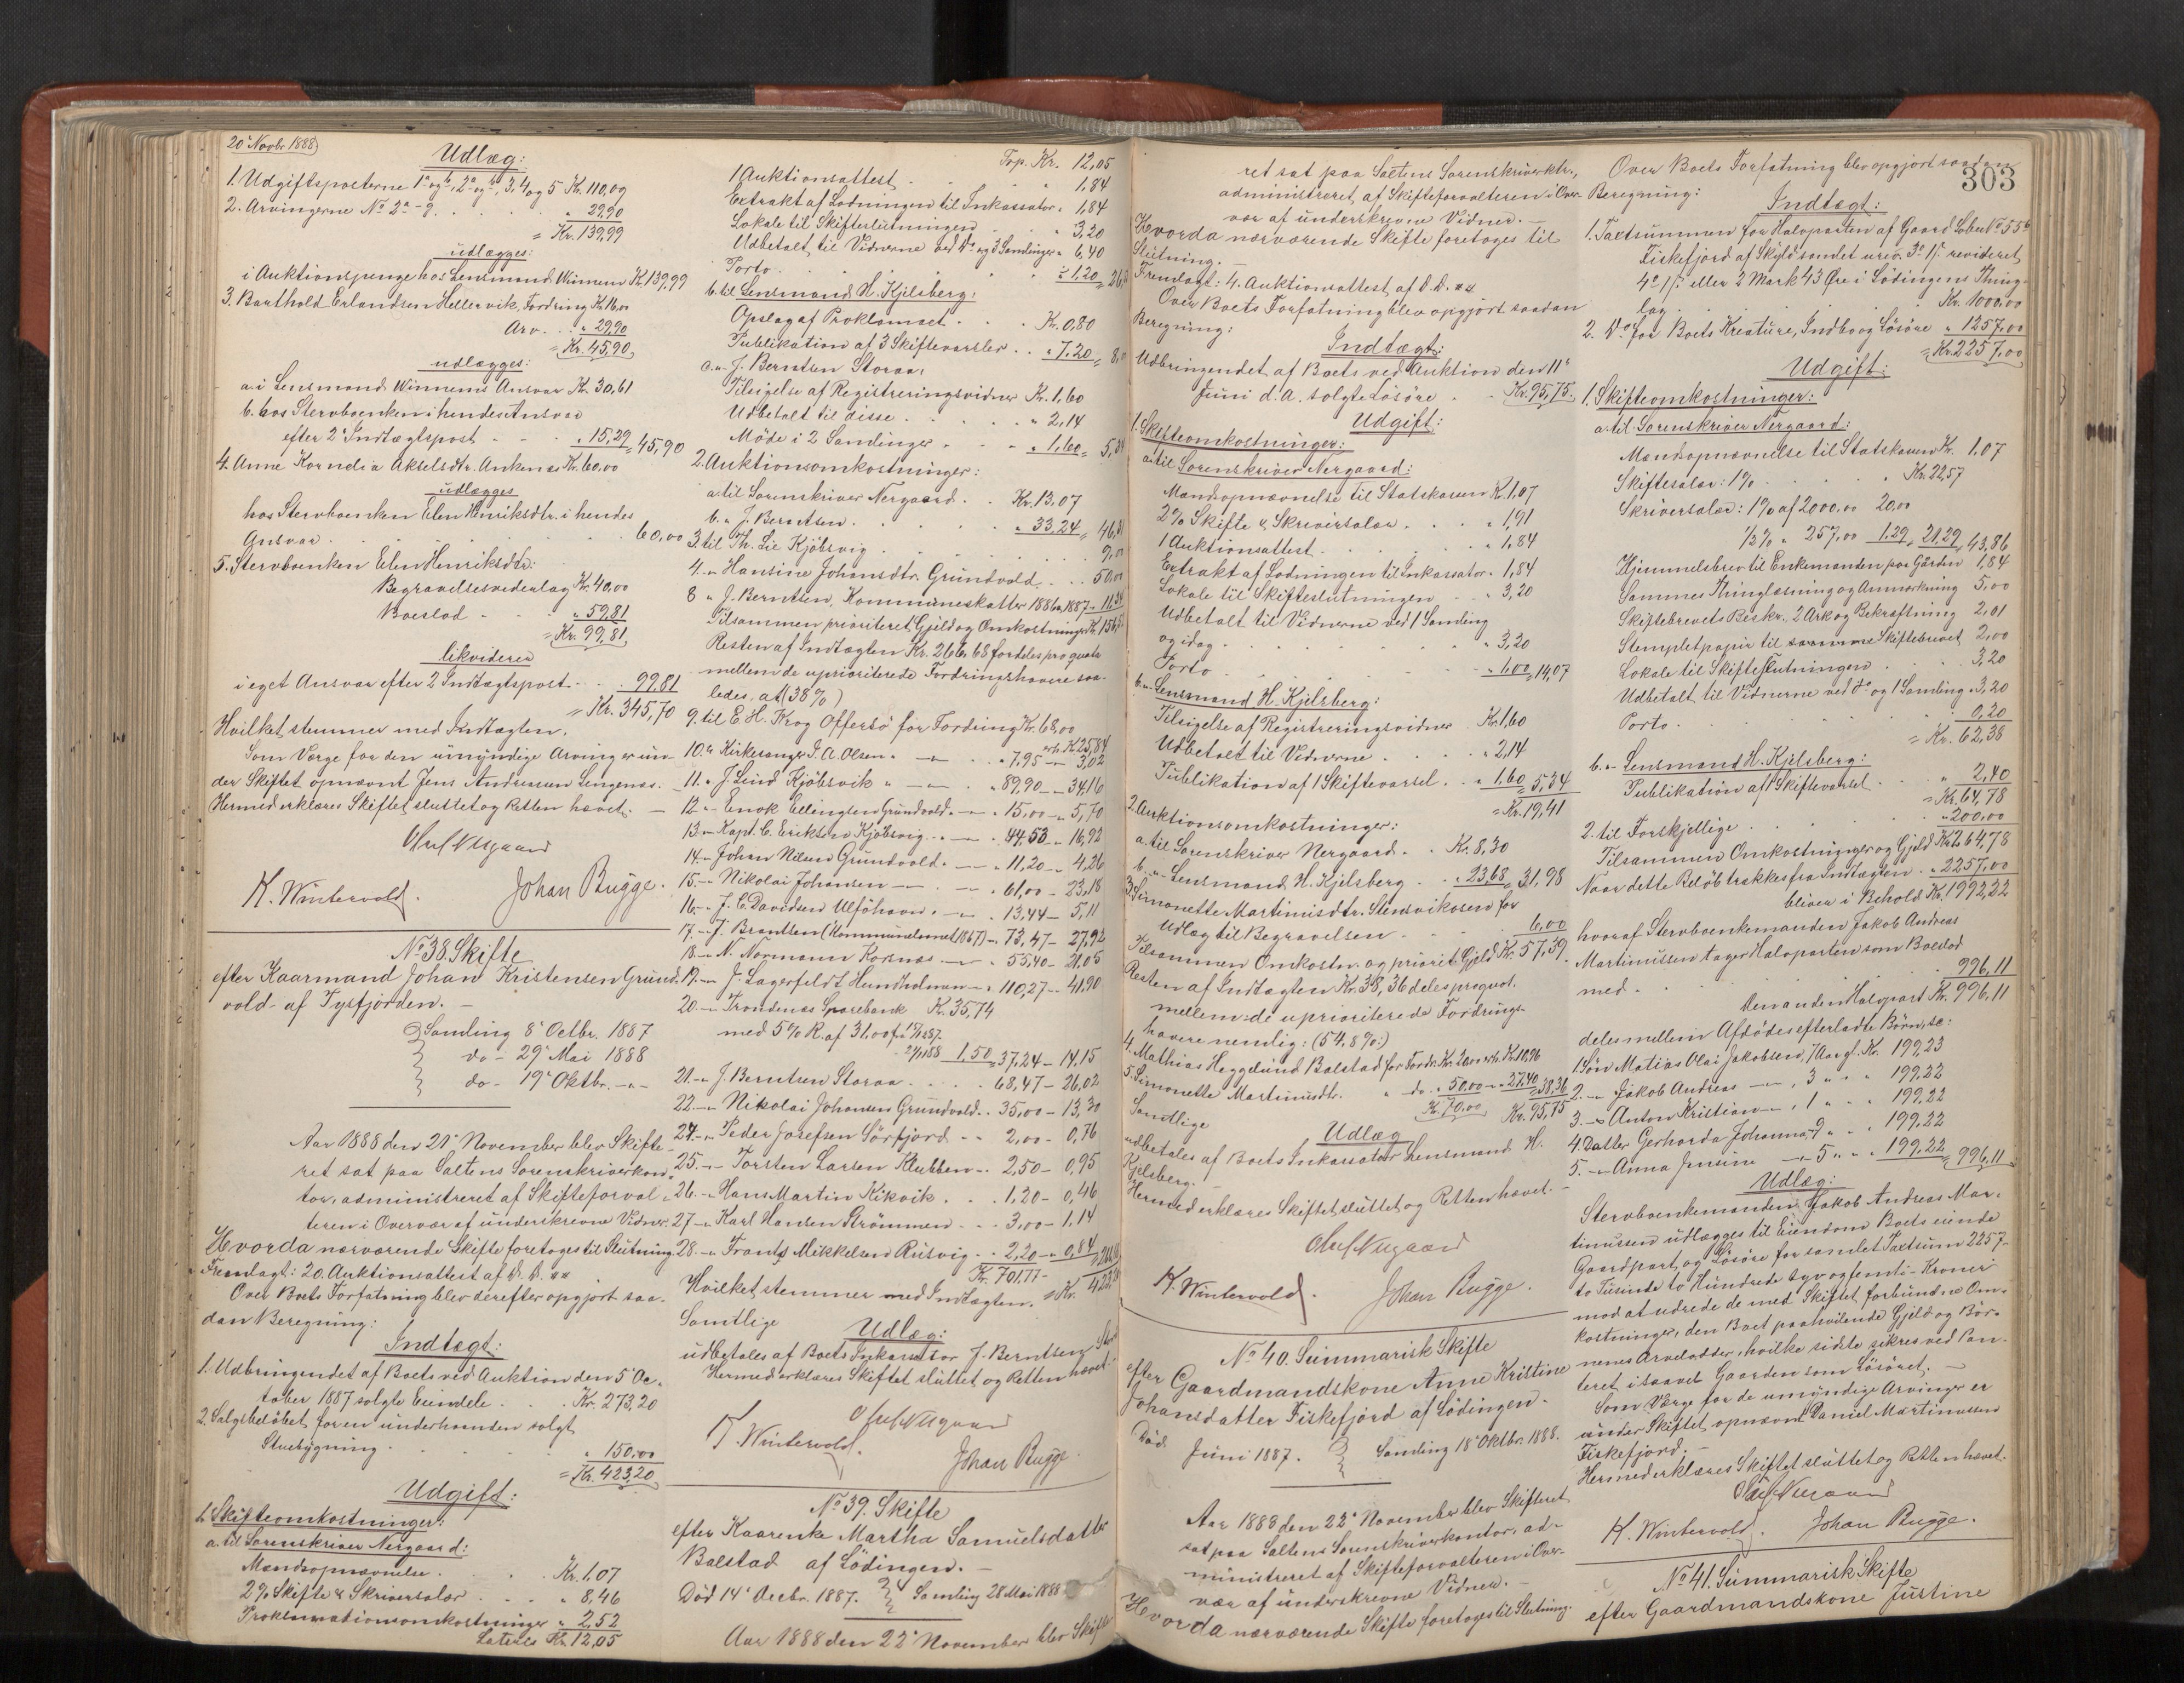 20' Novbr 1888
Udlæg:
1. Udgiftsposterne 1a og b, 2a og b, 3, 4 og 5 Kr. 110,09
2. Arvingerne No 2a - g. " 29,90
= Kr. 139,99
udlægges:
i Auktionspenge hos Lensmand Winnem Kr. 139,99
3. Barthold Erlandsen Hellervik, Fordring Kr. 16,00
Arv " 29,90
= Kr. 45,90
udlægges:
a. i Lensmand Winnems Ansvar Kr. 30,61
b. hos Stervboenken i hendes Ansvar
efter 2' Indtægtspost " 15,29 = 45,90
4. Anne Kornelia Akselsdtr. Ankenes Kr. 60,00
udlægges
hos Stervboenken Elen Henriksdtr. i hendes
Ansvar 60,00
5. Stervboenken Elen Henriksdtr:
Begravelsesvederlag Kr. 40,00
Boeslod " 59,81
= Kr. 99,81
likviderer
i eget Ansvar efter 2 Indtægtspost 99,81
= Kr. 345,70
Hvilket stemmer med Indtægten.
Som Værge for den umyndige Arving er un-
der Skiftet opnævnt Jens Andersen Lingenæs.
Hermed erklæres Skiftet sluttet og Retten hævet. —
K. Wintervold. Johan Bugge.
No 38. Skifte
efter Kaarmand Johan Kristensen Grund-
vold af Tysfjorden. —
Samling 8' Octbr. 1887
do - 29' Mai 1888
do - 19' Oktbr. -"-
Aar 1888 den 21' November blev Skifte-
ret sat paa Saltens Sorenskriverkon-
tor, administreret af Skifteforval-
teren i Overvær af underskrevne Vidner.
Hvorda nærværende Skifte foretoges til Slutning.
Fremlagt: 20. Auktionsattest af D. D. **
Over Boets Forfatning blev derefter opgjort saa-
dan Beregning:
Indtægt:
1. Udbringendet af Boets ved Auktion den 5' Oc-
tober 1887 solgte Eiendele Kr. 273,20
2. Salgsbeløbet for en underhaanden solgt
Stuebygning " 150,00
= Kr. 423,20
Udgift:
1. Skifteomkostninger:
a. til Sorenskriver Nergaard:
Mandsopnævnelse Kr. 1,07
2% Skifte & Skriversalær " 8,46
Proklamationsomkostninger " 2,52
Lateres Kr. 12,05
Trp. Kr. 12,05
1 Auktionsattest " 1,84
Extrakt af Lodningen til Inkassator " 1,84
Lokale til Skifteslutningen " 3,20
Udbetalt til Vidnerne ved Do og 3 Samlinger " 6,40
Porto " 1,20 =
b. til Lensmand H. Kjelsberg:
Opslag af Proklamaet Kr. 0,80
Publikation af 3 Skiftevarsler " 7,20 =
c. -"- J. Berntsen Storaa:
Tilsigelse af Registreringsvidner Kr. 1,60
Udbetalt til disse " 2,14
Møde i 2 Samlinger " 1,60 =
2. Auktionsomkostninger:
a. til Sorenskriver Nergaard Kr. 13,07
b. " J. Berntsen " 33,24 =
3. til Th. Lie Kjøbsvig
4. -"- Hansine Johansdtr. Grundvold 50,00
8 " J. Berntsen, Kommuneskatter 1886 & 1887
Tilsammen prioriteret Gjeld og Omkostninger Kr.
Resten af Indtægten Kr. 266,68 fordeles pro quota
mellem de uprioriterede Fordringshavere saa-
ledes, at (38%)
9. til E. H. Krog Offersø for Fordring Kr. 68,00
erh. Kr. 25,84
10. " Kirkesanger J. A. Olsen " -"- " 7,95 - 3,02
11. " J. Lind Kjøbsvik " -"- " 89,90 - 34,16
12. " Enok Ellingsen Grundvold " -"- " 15,00 - 5,70
13. -"- Kapt. C. Eriksen Kjøbsvig " -"- " 44,53 - 16,92
14. -"- Johan Nilsen Grundvold " -"- " 11,20 - 4,26
15. -"- Nikolai Johansen -"- -"- " 61,00 - 23,18
16. -"- J. C. Davidsen Ulføhavn " -"- " 13,44 - 5,11
17. -"- J. Brantsen (Kommunelaanet 1867) - 73,47 - 27,92
18. -"- N. Normann Korsnæs -"- " 55,40 - 21,05
19. -"- J. Lagerfeldt Hundholmen -"- " 110,27 - 41,90
20. -"- Trondenæs Sparebank Kr. 35,74
med 5% R. af 31.00 fra
1,50 = 37,24 - 14,15
21. -"- J. Berntsen Storaa 68,47 - 26,02
22. -"- Nikolai Johansen Grundvold 35,00 - 13,30
24. -"- Peder Josefsen Sørfjord 2,00 - 0,76
25. -"- Torsten Larsen Klubben 2,50 - 0,95
26. -"- Hans Martin Kikvik 1,20 - 0,46
27. -"- Karl Hansen Strømmen 3,00 - 1,14
28. -"- Frants Mikkelsen Rusvig 2,20 - 0,84
Kr. 701,77 -
Hvilket stemmer med Indtægten. = Kr.
Udlæg:
Samtlige
udbetales af Boets Inkassator J. Berntsen
Hermed erklæres Skiftet sluttet og Retten hævet.
K. Wintervold. Johan Bugge
No 39. Skifte
efter Kaarenke Martha Samuelsdatter
Balstad af Lødingen. —
Død 14' Decbr. 1887. Samling 28 Mai 1888
Aar 1888 den 22' November blev Skifte-
ret sat paa Saltens Sorenskriverktr.,
administreret af Skifteforvalteren i Over-
vær af underskrevne Vidner. —
Hvorda nærværende Skifte foretoges til
Slutning. —
Fremlagt: 4. Auktionsattest af D. D. **
Over Boets Forfatning blev opgjort saadan
Beregning:
Indtægt:
Udbringendet af Boets ved Auktion den 11'
Juni d. A. solgte Løsøre Kr. 95,75.
Udgift:
1. Skifteomkostninger:
a. til Sorenskriver Nergaard:
Mandsopnævnelse til Statskassen Kr. 1,07
2% Skifte & Skriversalær " 1,91
1 Auktionsattest " 1,84
Extrakt af Lodningen til Inkassator " 1,84
Lokale til Skifteslutningen " 3,20
Udbetalt til Vidnerne ved 1 Samling
og idag " 3,20
Porto " 1,00 = 14,07
b. -"- Lensmand H. Kjelsberg:
Tilsigelse af Registreringsvidner Kr. 1,60
Udbetalt til Vidnerne " 2,14
Publikation af 1 Skiftevarsel " 1,60 = 5,34
= Kr. 19,41
2. Auktionsomkostninger:
a. til Sorenskriver Nergaard Kr. 8,30
b. -"- Lensmand H. Kjelsberg " 23,68 = 31,98
3. Simonette Martinusdtr. Stensvikosen for
Udlæg til Begravelsen 6,00
Tilsammen Omkostn. og priorit. Gjeld Kr. 57,39.
Resten af Indtægten Kr. 38,36 deles pro quot.
mellem de uprioriterede Fordrings-
havere nemlig: (54,8%:)
4. Mathias Heggelund Balstad for Fordr. Kr. 20,00 erh. Kr. 10,96
5. Simonette Martinusdtr. " do " 50,00 - " 27,40 = 38,36
Kr. 70,00 Kr. 95,75
Udlæg
Samtlige
udbetales af Boets Inkassator Lensmand H.
Kjelsberg. —
Hermed erklæres Skiftet sluttet og Retten hævet. —
K. Wintervold. Johan Bugge.
No 40. Summarisk Skifte
efter Gaardmandskone Anne Kristine
Johansdatter Fiskefjord af Lødingen. —
Død
Juni 1887. Samling 18' Oktbr. 1888.
Aar 1888 den 22' November blev Skifteret
sat paa Saltens Sorenskriverkontor, ad-
ministreret af Skifteforvalteren i Over-
vær af underskrevne Vidner. —
Hvorda nærværende Skifte foretoges til Slutning.
303
Over Boets Forfatning blev opgjort saadan
Beregning:
Indtægt:
1. Taxtsummen for Halvparten af Gaard Løbe No 55b
Fiskefjord af Skyld samlet urev. 3 revideret
eller 2 Mark 43 Øre i Lødingens Thing-
lag Kr. 1000,00
2. Do for Boets Kreature, Indbo og Løsøre " 1257,00
= Kr. 2257,00
Udgift:
1. Skifteomkostninger:
a. til Sorenskriver Nergaard:
Mandsopnævnelse til Statskassen Kr. 1,07
Skiftesalær: 1% Kr. 22,57
Skriversalær: 1% af 2000,00 20,00
1/2% " 257,00 1,29 = 21,29 = 43,86
Hjemmelsbrev til Enkemanden paa Gården 1,84
Sammes Thinglæsning og Anmærkning 5,00
Skiftebrevets Beskr., 2 Ark og Bekræftning 2,01
Stempletpapir til samme Skiftebrevet 2,00
Lokale til Skifteslutningen 3,20
Udbetalt til Vidnerne ved Do og 1 Samling " 3,20
Porto 0,20
= Kr. 62,38
b. -"- Lensmand H. Kjelsberg:
Publikation af 1 Skiftevarsel " 2,40
= Kr. 64,78
2. til Forskjellige " 200,00
Tilsammen Omkostninger og Gjeld Kr. 264,78
Naar dette Beløb trækkes fra Indtægten " 2257,00
bliver i Behold Kr. 1992,22
hvoraf Stervboenkemanden Jakob Andreas
Martinussen tager Halvparten som Boeslod
med 996,11
Den anden Halvpart Kr. 996,11
deles mellem Afdødes efterladte Børn, sc:
1. Søn Matias Olai Jakobsen, 7 Aar gl. Kr. 199,23
2. -"- Jakob Andreas -"-, 3 " " " 199,22
3. -"- Anton Kristian -"-, 1 " " " 199,22
4. Datter Gerharda Johanna, 9 " " " 199,22
5. -"- Anna Jensine -"- 5 " " " 199,22 = 996,11
Udlæg:
Stervboenkemanden Jakob Andreas Mar-
tinussen udlægges til Eiendom Boets eiende
Gaardpart og Løsøre for samlet Taxtsum 2257-
to Tusinde to Hundrede syvogfemti - Kroner
mod at udrede de med Skiftet forbundne Om-
kostninger, den Boet paahvilende Gjeld og Bør-
nenes Arvelodder, hvilke sidste sikres ved Pan-
teret i saavel Gaarden som Løsøret. —
Som Værge for de umyndige Arvinger er
under Skiftet opnævnt Daniel Martinussen
Fiskefjord. —
Hermed erklæres Skiftet sluttet og Retten hævet.
K. Wintervold. Johan Bugge.
No 41. Summarisk Skifte
efter Gaardmandskone Justine